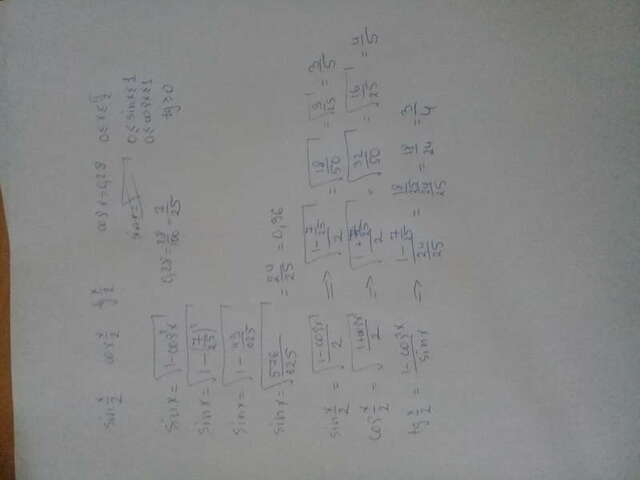 sin x/2 cos x/2 tg x/2 cos x = 0,28 0 ≤ x ≤ π/2
0 ≤ sin x ≤ 1
0 ≤ cos x ≤ 1
tg > 0
sin x = √(1 - cos²x) 0,28 = 28/100 = 7/25
sin x = √(1 - (7/25)²)
sin x = √(1 - 49/625)
sin x = √(576/625) = 24/25 = 0,96
sin x/2 = √((1 - cos x)/2) => √((1 - 7/25)/2) = √(18/50) = √(9/25) = 3/5
cos x/2 = √((1 + cos x)/2) => √((1 + 7/25)/2) = √(32/50) = √(16/25) = 4/5
tg x/2 = (1 - cos x)/sin x => (1 - 7/25)/(24/25) = (18/25)/(24/25) = 18/24 = 3/4